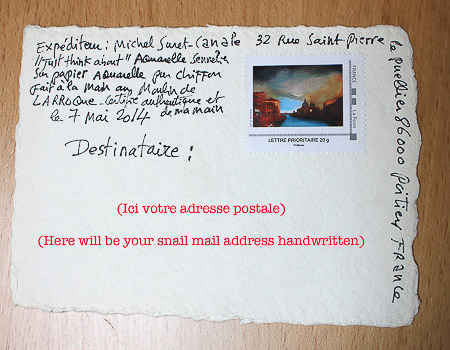 Expéditeur : Michel Suret-Canale 32 Rue Saint Pierre
le puellier 86000 Poitier FRANCE
"Just think about" Aquarelle Sennelier
Sur papier Aquarelle pur chiffon
fait à la main au Moulin de
LARROQUE. Certifié authentique et
de ma main
le 7 Mai 2014
FRANCE
LA POSTE
LETTRE PRIORITAIRE 20 g
Destinataire :
(Ici votre adresse postale)
(Here will be your snail mail address handwritten)